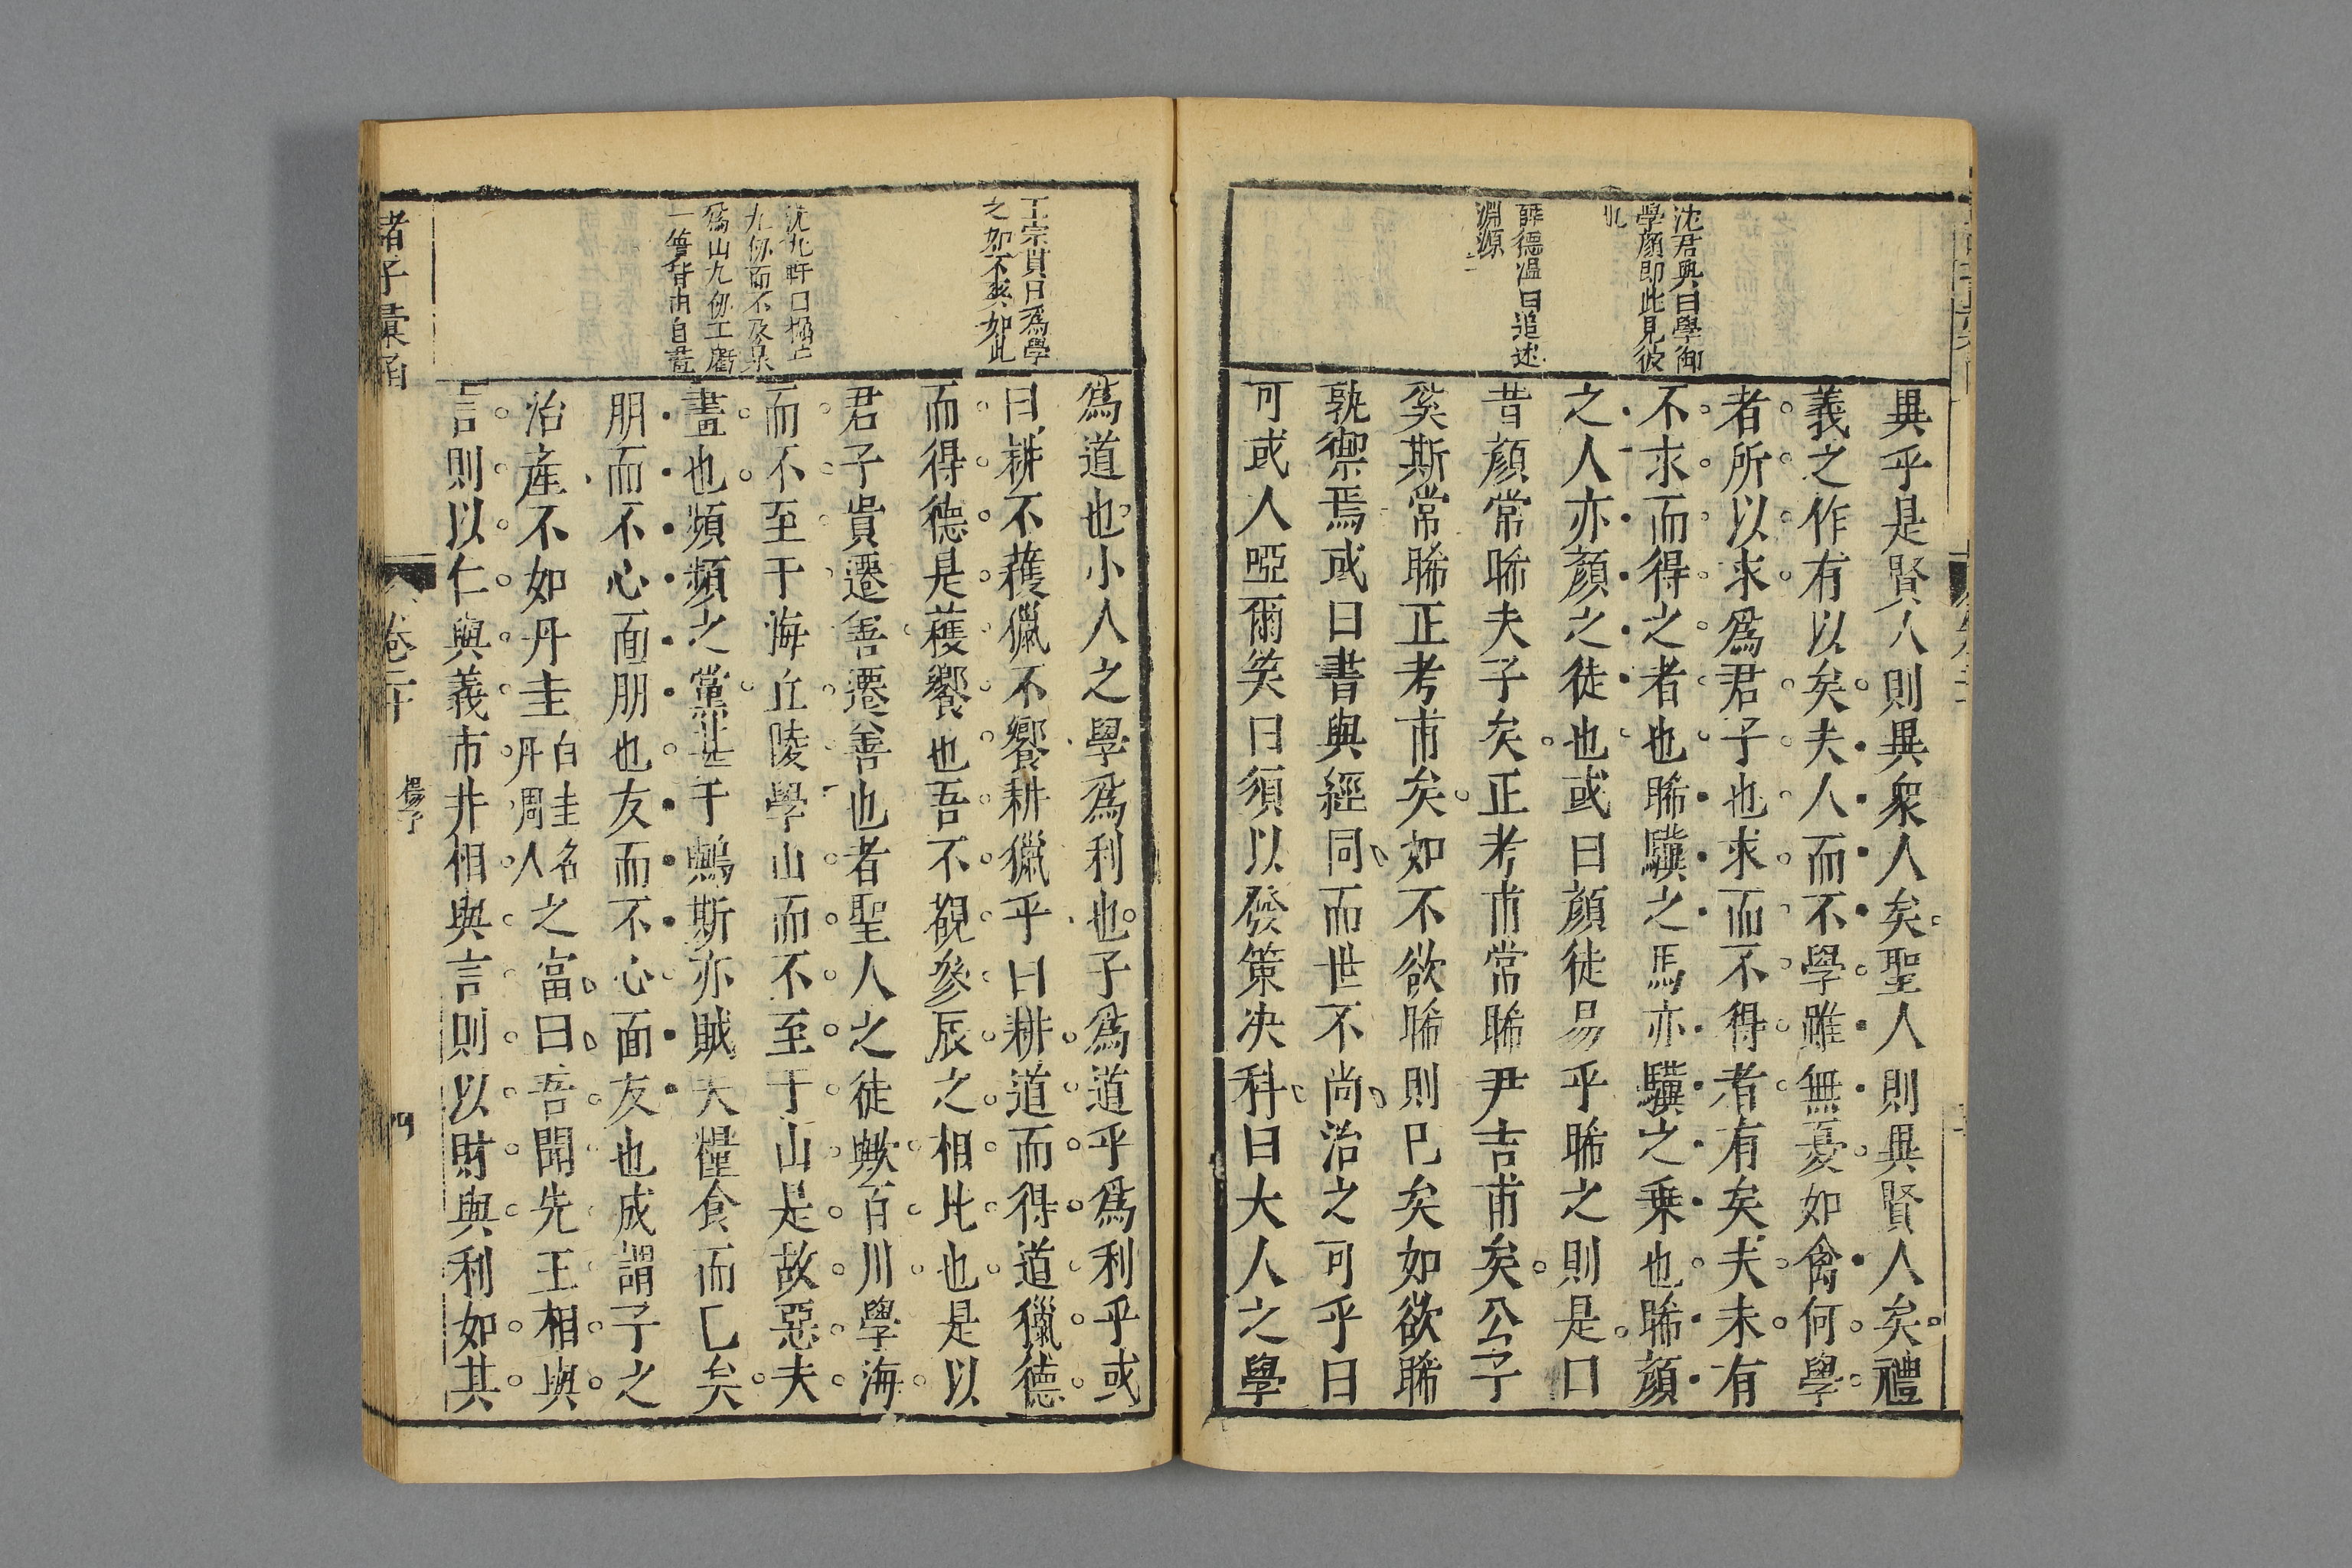 沈君典曰學御
學顏即此見彼
薛德温曰追述
淵源
異乎是賢人則異衆人矣聖人則異賢人矣禮
義之作有以矣夫人而不學雖無憂如禽何學
者所以求爲君子也求而不得者有矣夫未有
不求而得之者也睎驥之馬亦驥之乗也睎顏
之人亦顏之徒也或曰顏徒易乎睎之則是曰
昔顏常睎夫子矣正考甫常睎尹吉甫矣公子
奚斯常睎正考甫矣如不欲睎則巳矣如欲睎
孰禦焉或曰書與經同而世不尚治之可乎曰
可或人啞爾笑曰須以發策决科曰大人之學
王宗貫曰爲學
之如不爽如此
九仭而不及泉
爲山九仭工虧
一簣皆由自畫
爲道也小人之學爲利也子爲道乎爲利乎或
曰耕不穫獵不饗耕獵乎曰耕道而得道獵德
而得德是穫饗也吾不覩參辰之相比也是以
君子貴遷善遷善也者聖人之徒歟百川學海
而不至于海丘陵學山而不至于山是故惡夫
畫也頻頻之黨甚于鸒斯亦賊夫糧食而已矣
朋而不心面朋也友而不心面友也或謂子之
治產不如丹圭白圭名丹周人之富曰吾聞先王相與
言則以仁與義市井相與言則以財與利如其
諸子彚函
卷二十
楊子
四